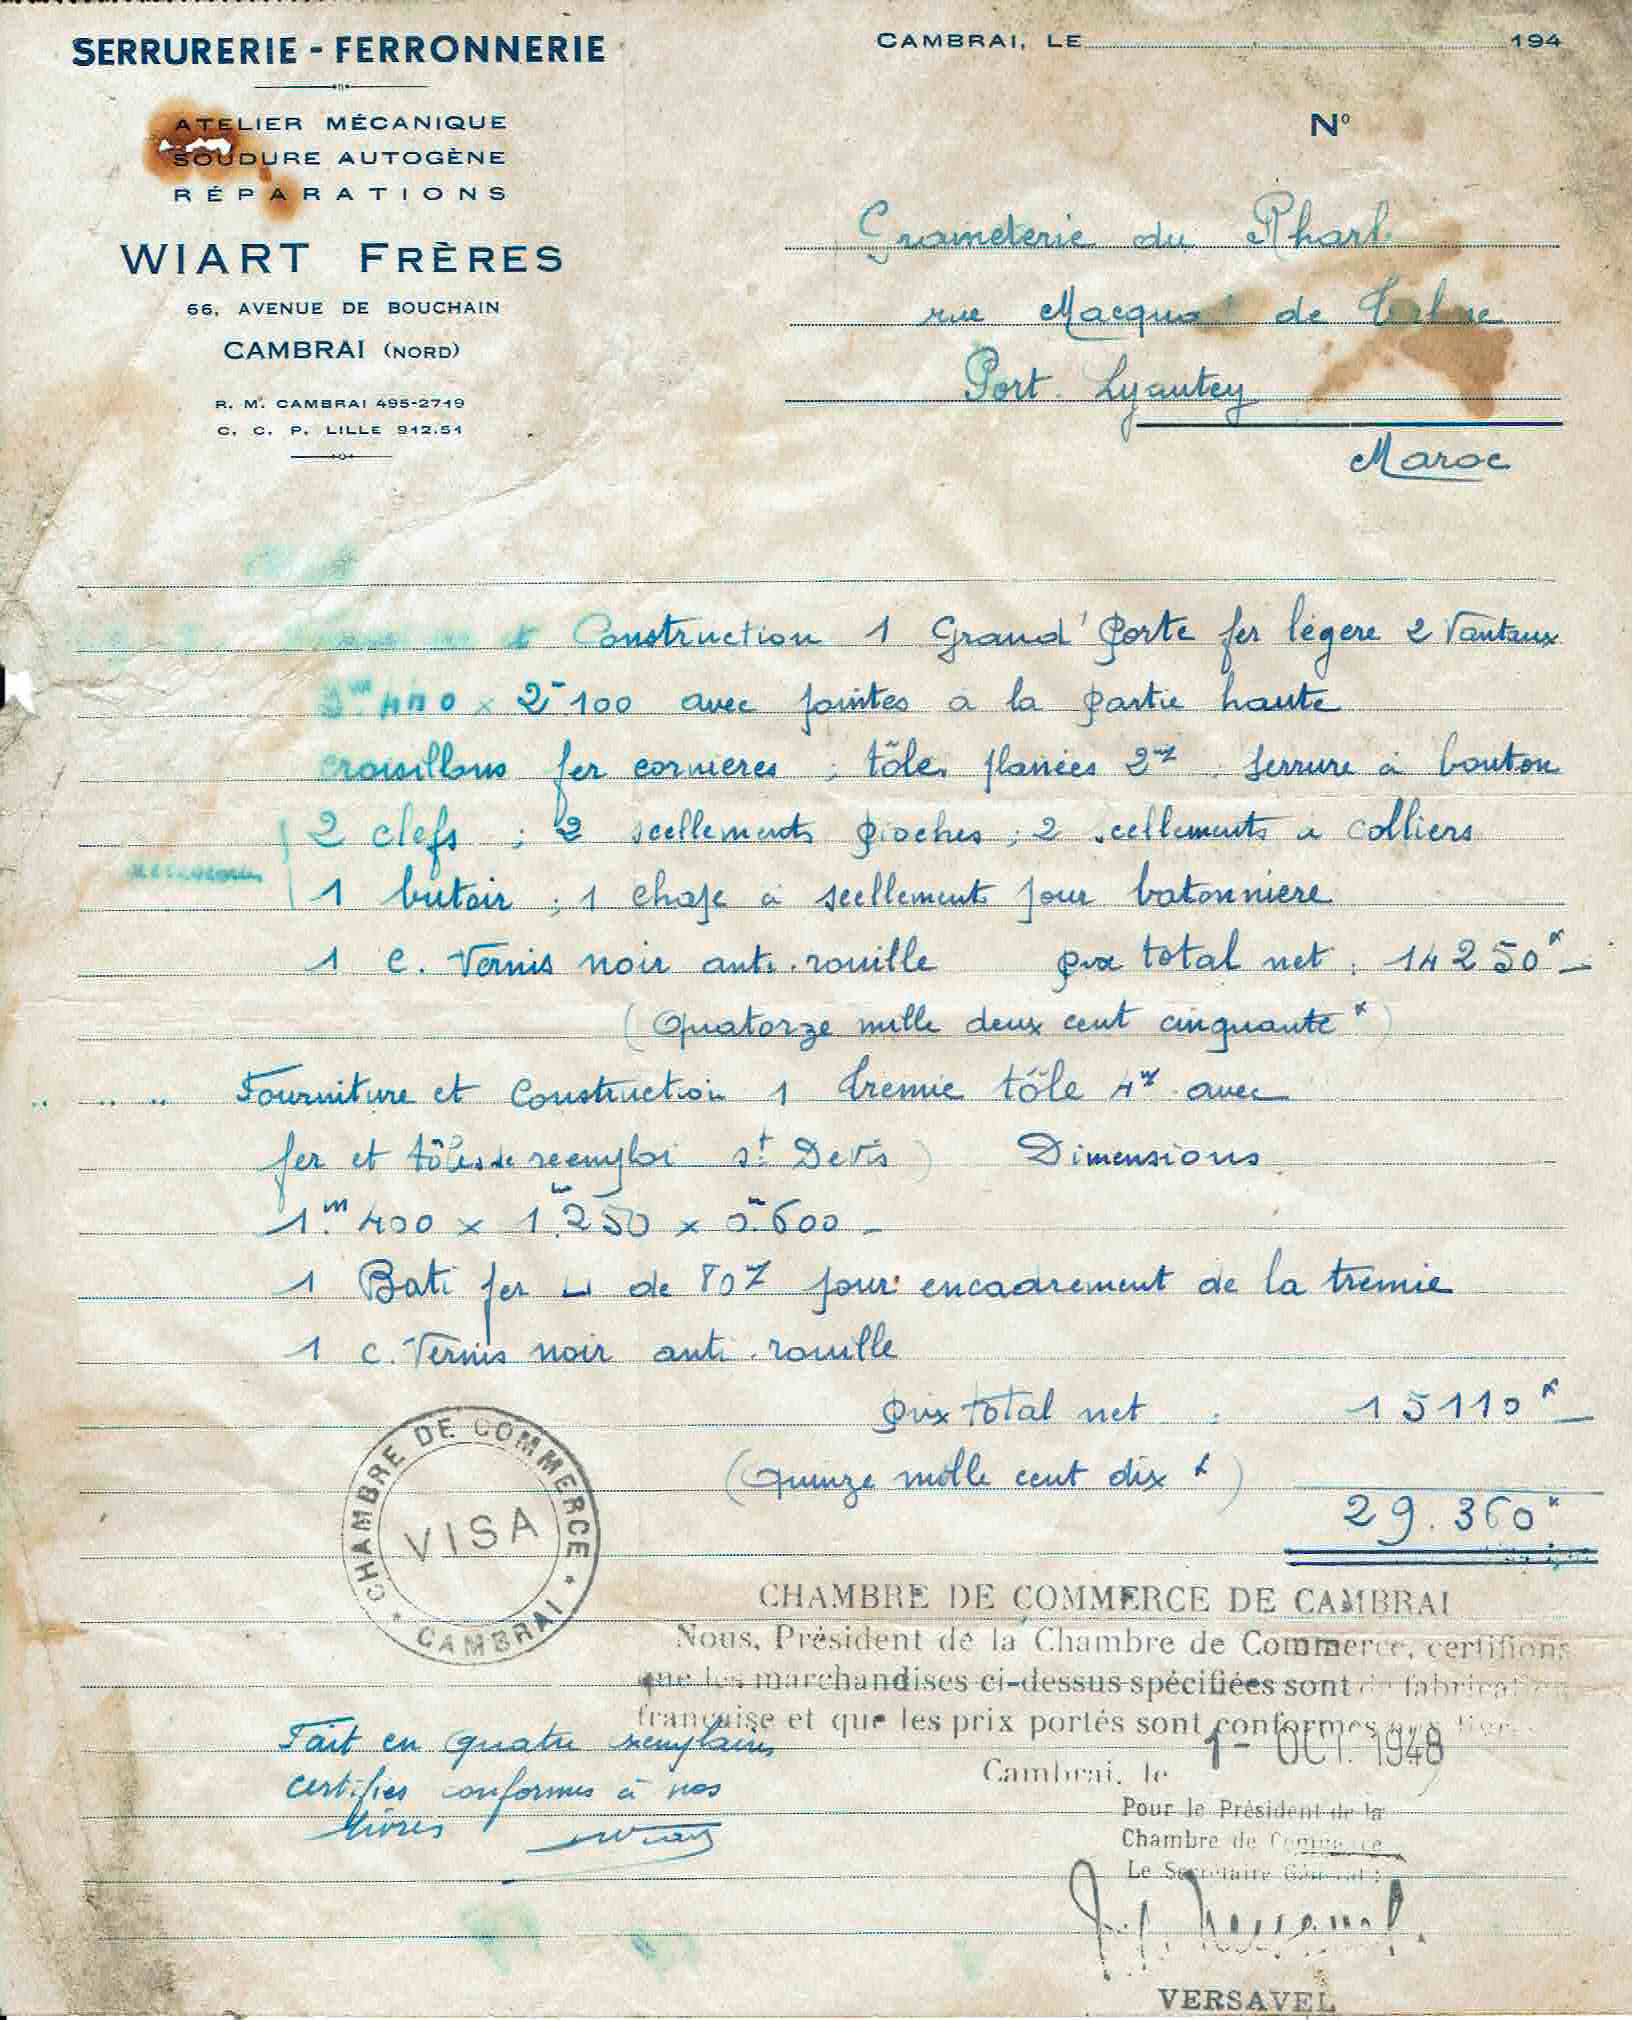 SERRURERIE - FERRONNERIE
ATELIER MÉCANIQUE
SOUDURE AUTOGÈNE
RÉPARATIONS
WIART FRÈRES
66, AVENUE DE BOUCHAIN
CAMBRAI (NORD)
R. M. CAMBRAI 495-2719
C. C. P. LILLE 912.51
CAMBRAI, LE 194
N°
Graineterie du
rue de
Port. Lyautey
Maroc
Construction 1 Grand' Porte fer légère 2 Vantaux
× 2m100 avec pointes à la partie haute
croisillons fer cornieres ; tôles planées 2m/m serrure à bouton
2 clefs ; 2 scellements pioches ; 2 scellements à colliers
1 butoir ; 1 chape à scellements pour batonniere
1 c. Vernis noir anti-rouille prix total net : 14250f
(Quatorze mille deux cent cinquante f)
.. .. .. Fourniture et Construction 1 tremie tôle 4m/m avec
fer et tôles de réemploi st Devis) Dimensions
1m400 × 1m250 × 0m600
1 Bati fer ⊔ de 80m/m pour encadrement de la tremie
1 c. Vernis noir anti-rouille
prix total net : 15110f
(Quinze mille cent dix f)
29.360f
CHAMBRE DE COMMERCE
VISA
CAMBRAI
CHAMBRE DE COMMERCE DE CAMBRAI
Nous, Président de la Chambre de Commerce, certifions
que les marchandises ci-dessus spécifiées sont de fabrication
française et que les prix portés sont conformes aux
Cambrai, le 1- OCT. 1948
Fait en quatre exemplaires
certifiés conformes à nos
livres
Pour le Président de la
Chambre de Commerce
Le Secrétaire Général :
VERSAVEL